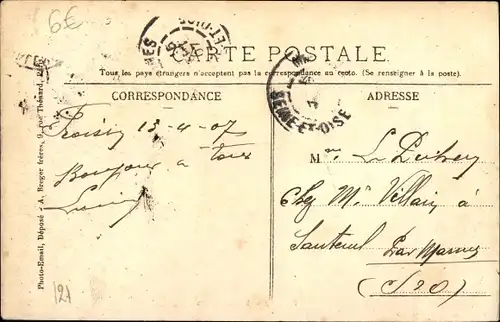 6€
CARTE POSTALE
Tous les pays étrangers n'acceptent pas la correspondance au recto. (Se renseigner à la poste).
CORRESPONDANCE
ADRESSE
SEINE-ET-OISE
13-4-07
Bonjour a tous
M
Chez Mr Villain à
Santeuil par Marines
(S O)
Photo-Email, Déposé - A. Berger frères, 9, rue Thénard,
121